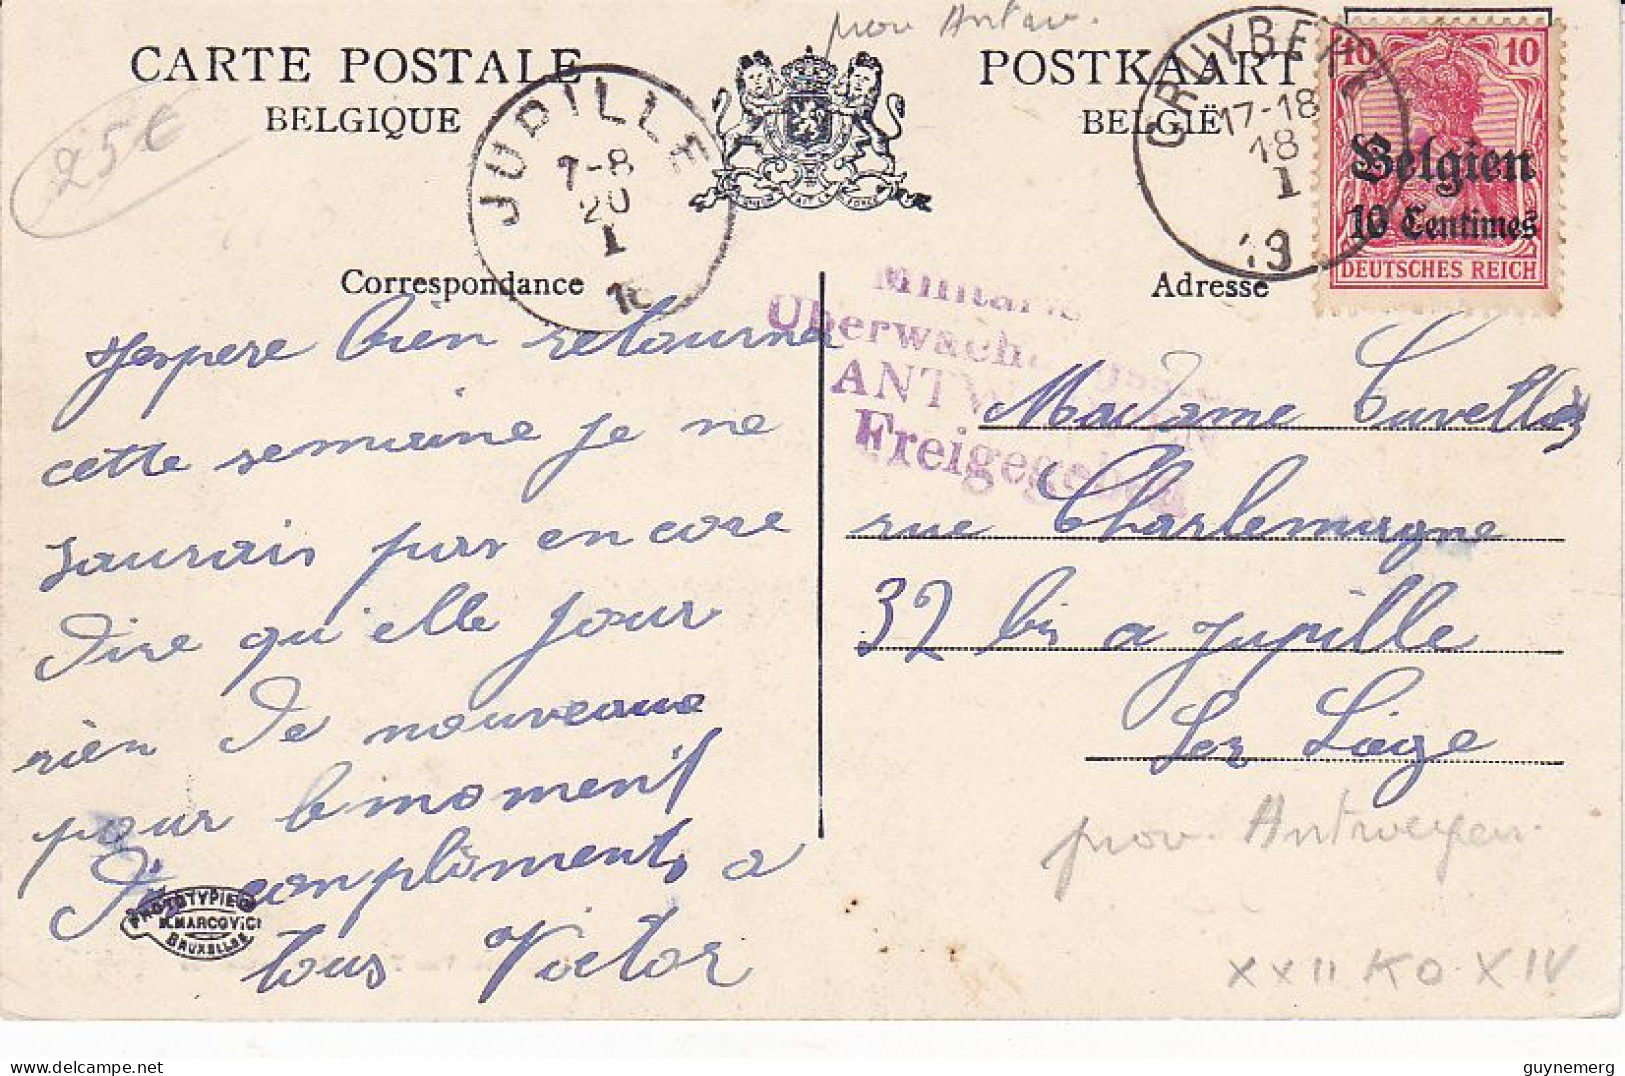 prov Antw.
CARTE POSTALE
BELGIQUE
POSTKAART
BELGIË
25€
JUPILLE
7-8
20
I
CRUYBEKE
17-18
18
I
10 10
Belgien
10 Centimes
DEUTSCHES REICH
Correspondance
Adresse
Militär
Überwach
ANTW
Freigegeben
J'espere bièn retourner
cette semaine je ne
saurais pas encore
dire qu'elle jour
rièn de nouveaux
pour le moment
complèments a
tous Victor
Madame
rue Charlemagne
32 bis a Jupille
Lez Liège
prov. Antwerpen.
XXII KO XIV
PROTOTYPIE
M. MARCOVICI
BRUXELLES
guynemerg